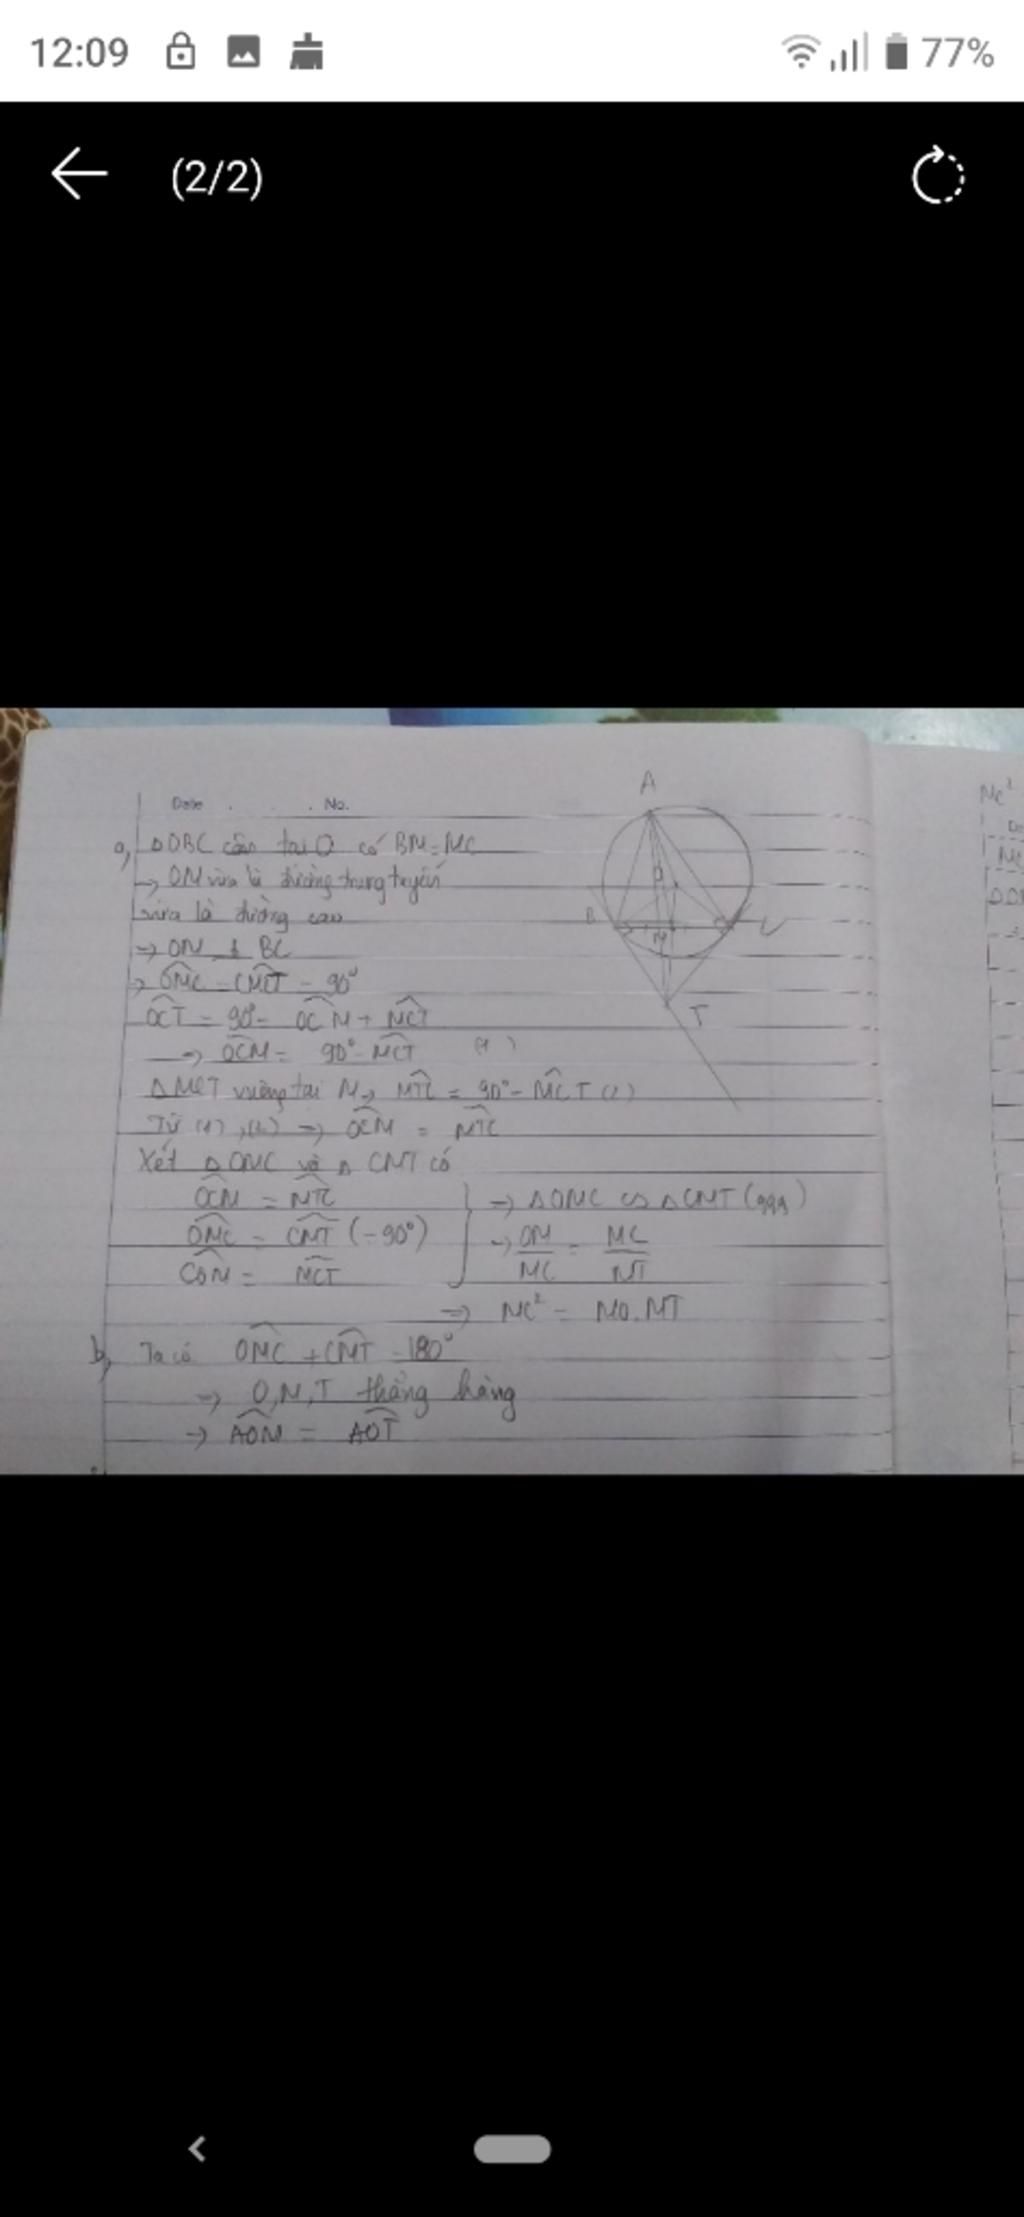 12:09
77%
(2/2)
A
Date . . . No.
a, ΔOBC cân tại O có BM = MC
→ OM vừa là đường trung tuyến
vừa là đường cao
→ OM ⊥ BC
→ OMC = CMT = 90°
OCT = 90° = OCM + MCT
→ OCM = 90° - MCT (1)
ΔMCT vuông tại M → MTC = 90° - MCT (2)
Từ (1), (2) → OCM = MTC
Xét ΔOMC và ΔCMT có
OCM = MTC
OMC = CMT (=90°)
COM = MCT
→ ΔOMC ∽ ΔCMT (ggg)
→ OM/MC = MC/MT
→ MC² = MO.MT
b, Ta có OMC + CMT = 180°
→ O, M, T thẳng hàng
→ AOM = AOT
O
B
M
C
T
MC²